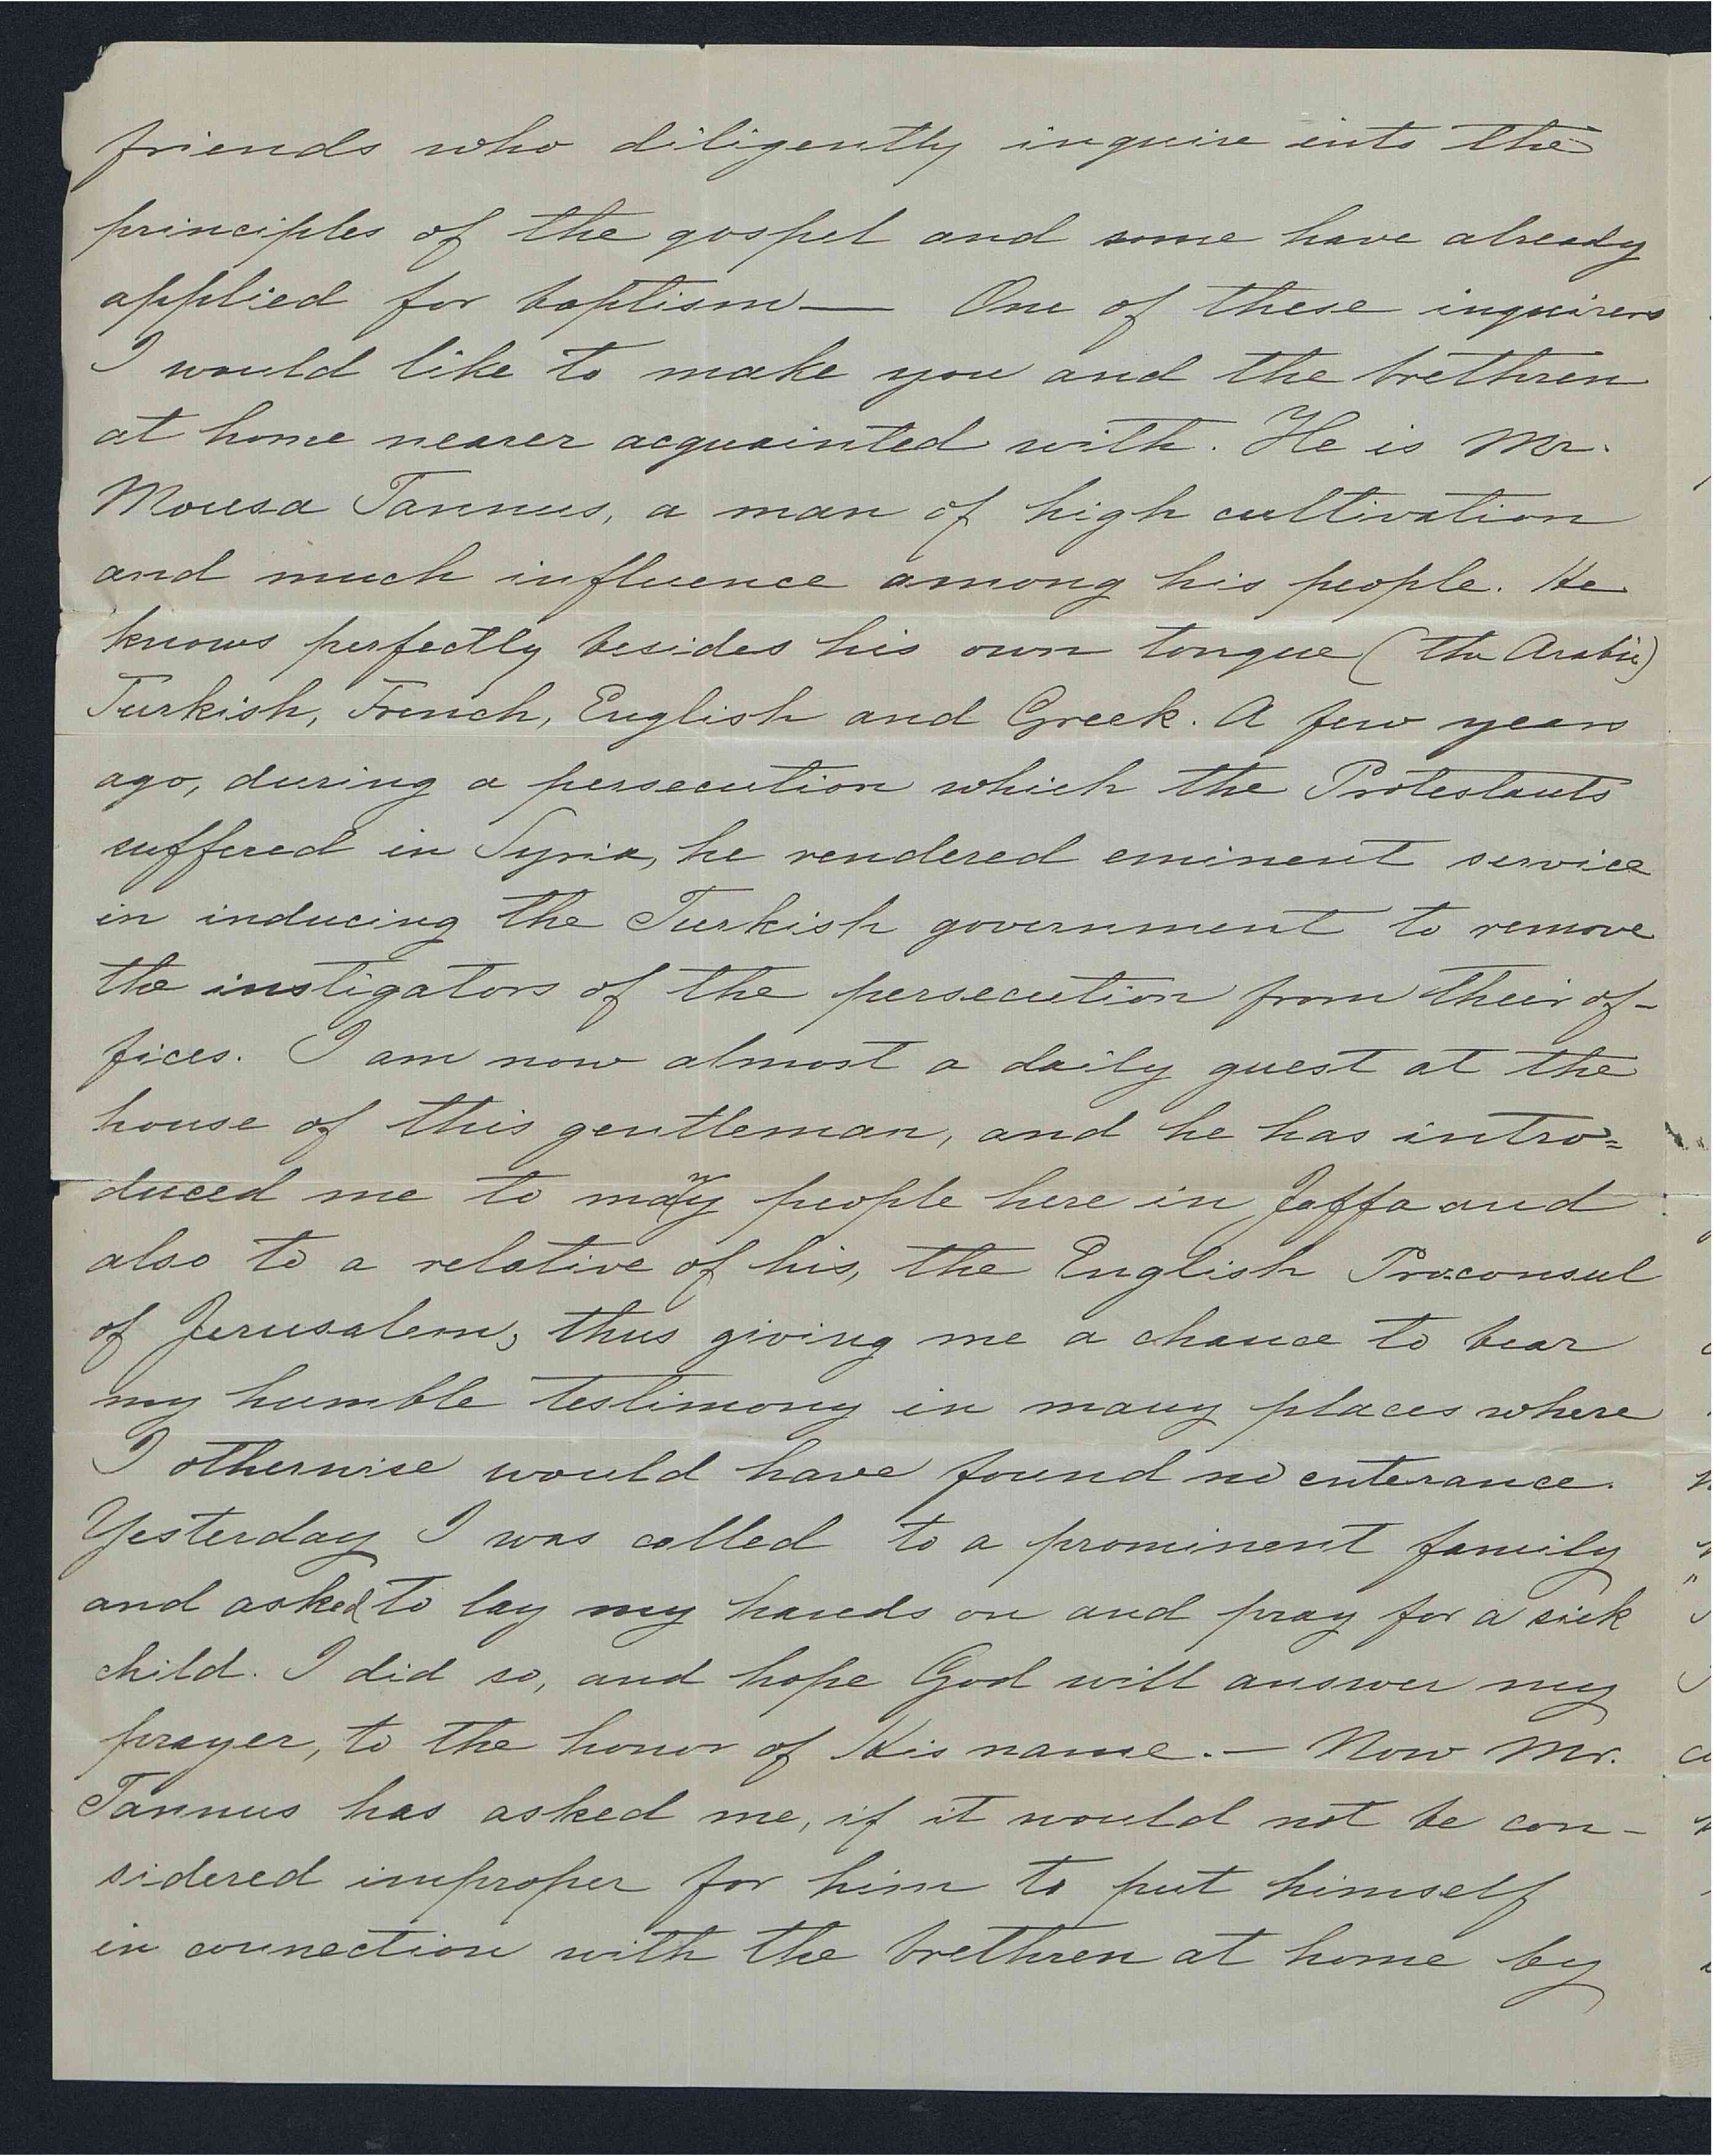 friends who diligently inquire into the
principles of the gospel and some have already
applied for baptism— One of these inquirers
I would like to make you and the brethren
at home nearer acquainted with. He is Mr.
Mousa Tannus, a man of high cultivation
and much influence among his people. He
knows perfectly besides his own tongue (the Arabic)
Turkish, French, English and Greek. A few years
ago, during a persecution which the Protestants
suffered in Syria, he rendered eminent service
in inducing the Turkish government to remove
the instigators of the persecution from their of-
fices. I am now almost a daily guest at the
house of this gentleman, and he has intro=
duced me to many people here in Jaffa and
also to a relative of his, the English Proconsul
of Jerusalem, thus giving me a chance to bear
my humble testimony in many places where
I otherwise would have found no enterance.
Yesterday I was called to a prominent family
and asked to lay my hands on and pray for a sick
child. I did so, and hope God will answer my
prayer, to the honor of His name.— Now Mr.
Tannus has asked me, if it would not be con-
sidered improper for him to put himself
in connection with the brethren at home by